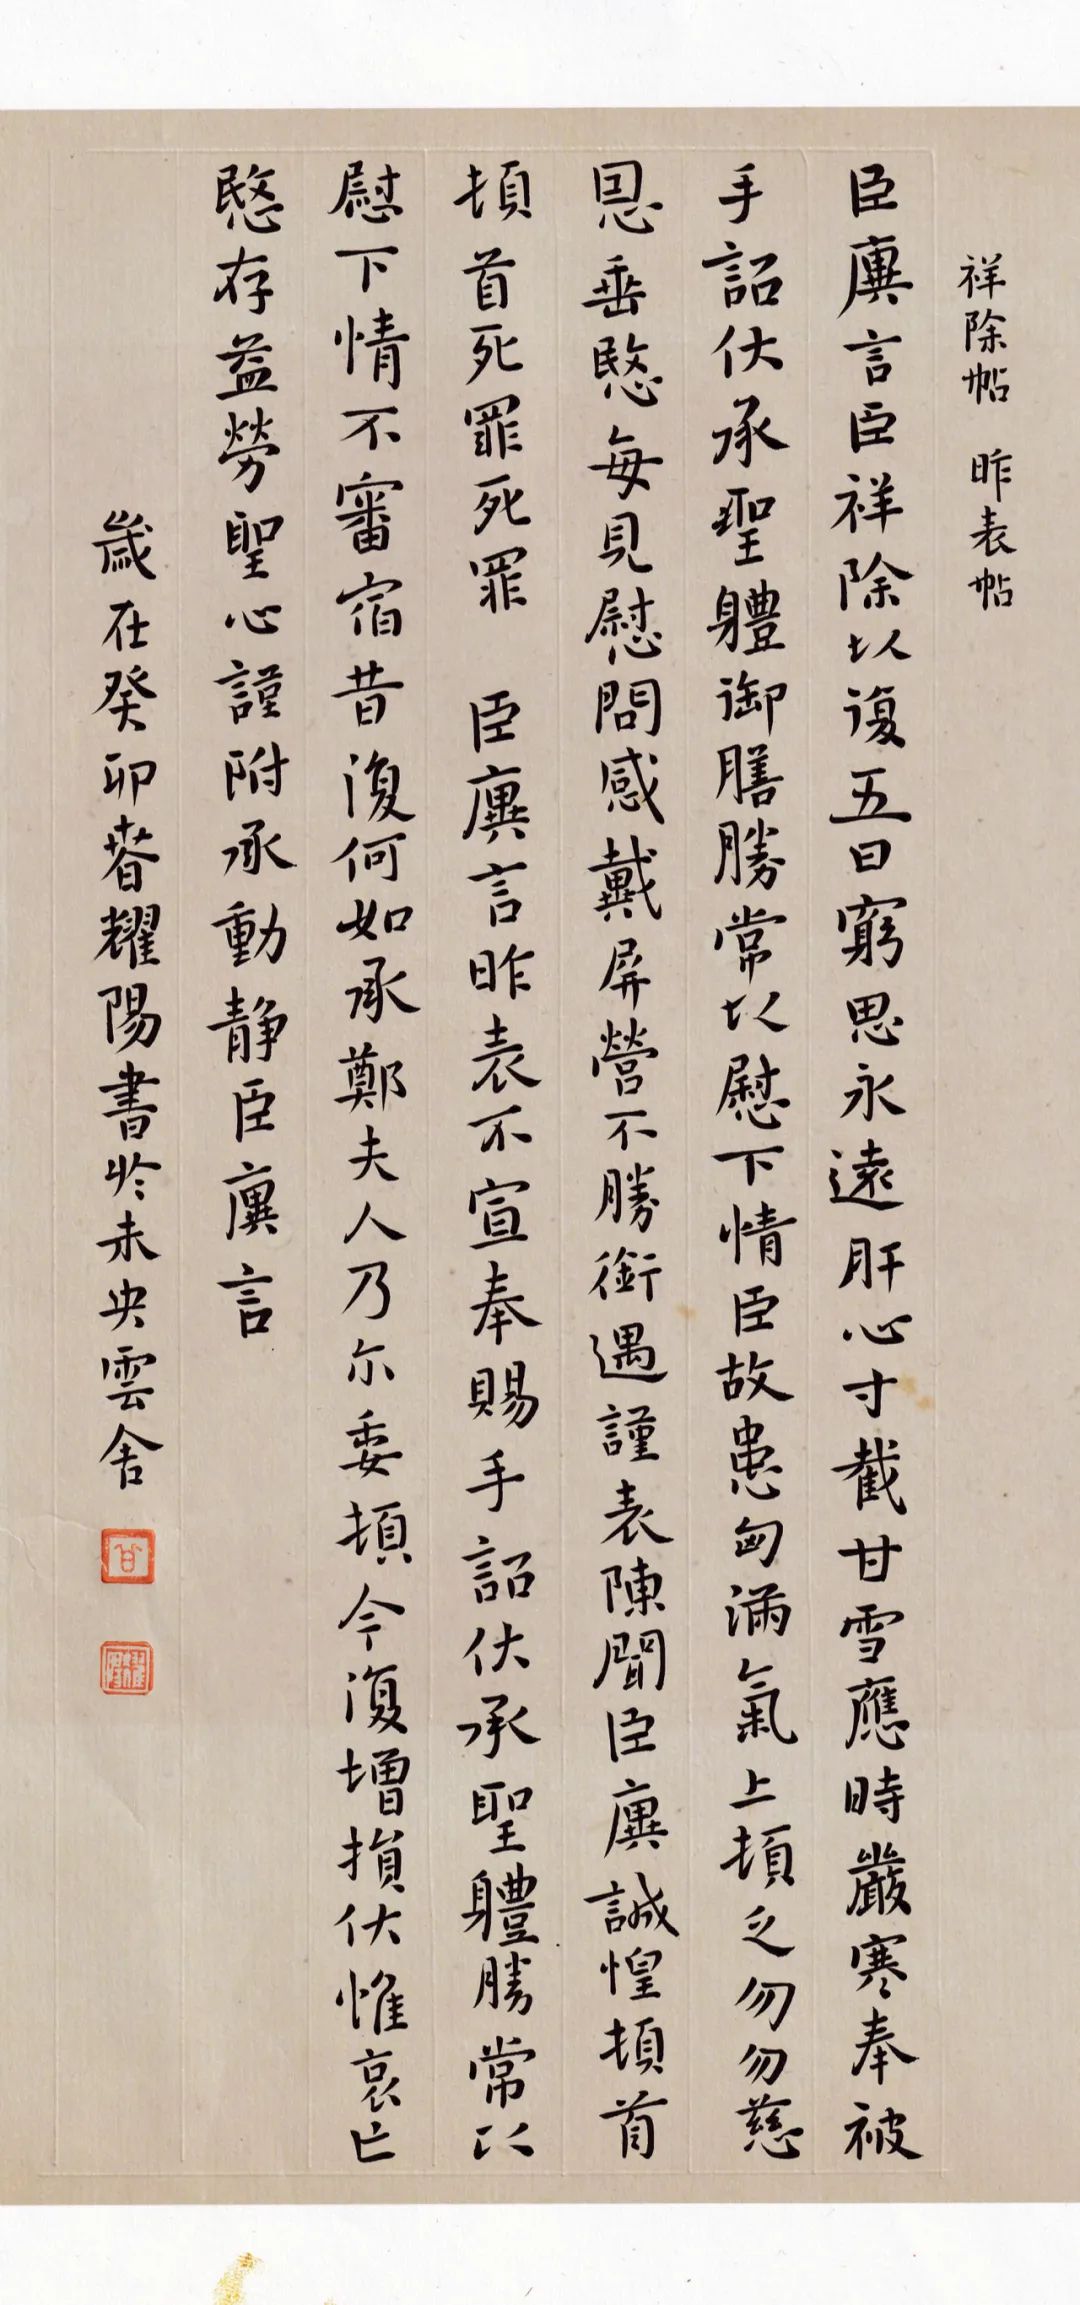 祥除帖 昨表帖
臣廙言臣祥除以復五日窮思永遠肝心寸截甘雪應時嚴寒奉被
手詔伏承聖體御膳勝常以慰下情臣故患匈滿氣上頓乏勿勿慈
恩垂愍每見慰問感戴屏營不勝銜遇謹表陳聞臣廙誠惶頓首
頓首死罪死罪 臣廙言昨表不宣奉賜手詔伏承聖體勝常以
慰下情不審宿昔復何如承鄭夫人乃尒委頓今復增損伏惟哀亡
愍存益勞聖心謹附承動靜臣廙言
歲在癸卯春耀陽書於未央雲舍
甘